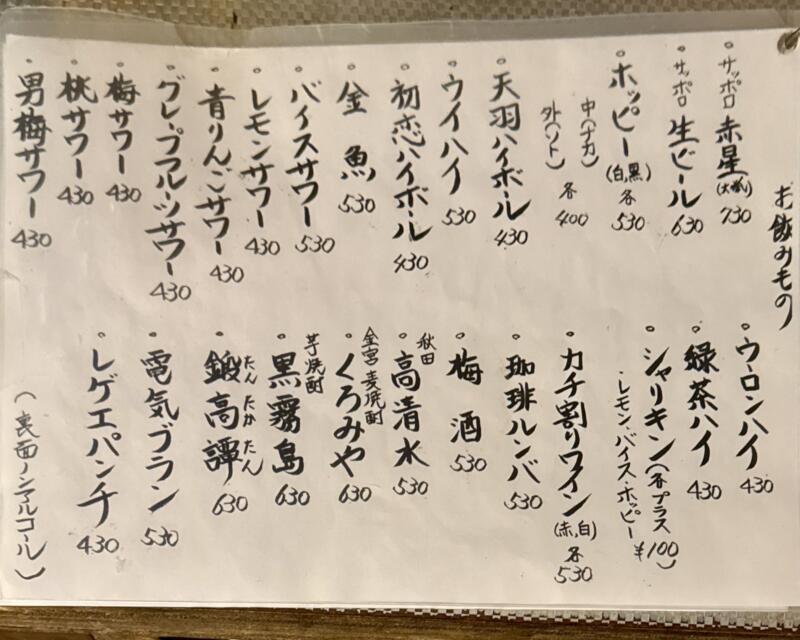 お飲みもの
。サッポロ 赤星(大瓶) 730
。サッポロ 生ビール 630
。ホッピー(白,黒) 各530
中(ナカ)
外(ソト) 各400
。天羽ハイボール 430
。ウイハイ 530
。初恋ハイボール 430
。金魚 530
。バイスサワー 530
。レモンサワー 430
。青りんごサワー 430
。グレープフルーツサワー 430
。梅サワー 430
。桃サワー 430
。男梅サワー 430
。ウーロンハイ 430
。緑茶ハイ 430
。シャリキン(各プラス ¥100)
・レモン、バイス・ホッピー
。カチ割りワイン(赤,白) 各530
。珈琲ルンバ 530
。梅酒 530
。秋田 高清水 530
。金宮麦焼酎 くろみや 630
。芋焼酎 黒霧島 630
。鍛高譚 たんたかたん 630
。電気ブラン 530
。レゲエパンチ 430
(裏面ノンアルコール)